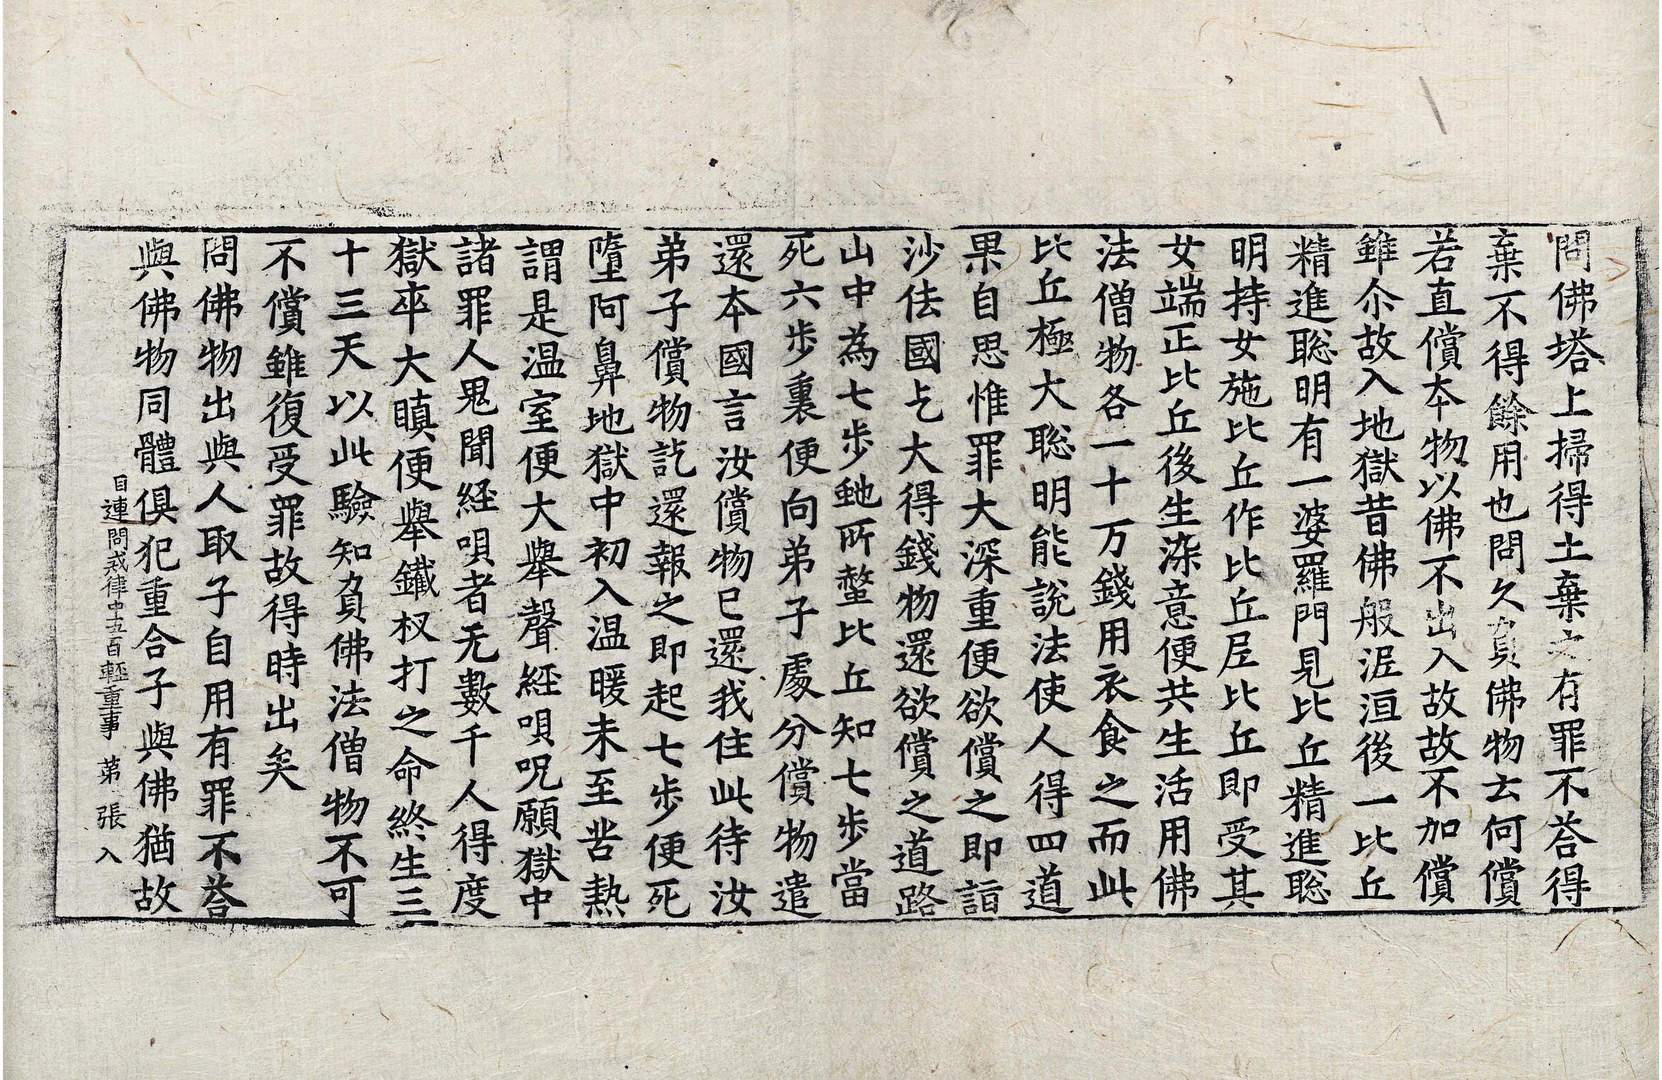 問佛塔上掃得土棄之有罪不荅得
棄不得餘用也問久負佛物云何償
若直償本物以佛不出入故故不加償
雖尒故入地獄昔佛般泥洹後一比丘
精進聡明有一婆羅門見比丘精進聡
明持女施比丘作比丘尼比丘即受其
女端正比丘後生染意便共生活用佛
法僧物各一十万錢用衣食之而此
比丘極大聡明能說法使人得四道
果自思惟罪大深重便欲償之即詣
沙佉國乞大得錢物還欲償之道路
山中為七步虵所螫比丘知七步當
死六步裏便向弟子處分償物遣
還本國言汝償物已還我住此待汝
弟子償物訖還報之即起七步便死
墮阿鼻地獄中初入温暖未至苦熱
謂是温室便大舉聲經唄呪願獄中
諸罪人鬼聞経唄者无數千人得度
獄卒大瞋便舉鐵杈打之命終生三
十三天以此驗知負佛法僧物不可
不償雖復受罪故得時出矣
問佛物出與人取子自用有罪不荅
與佛物同體俱犯重合子與佛猶故
目連問戒律中五百輕重事 第 張 入